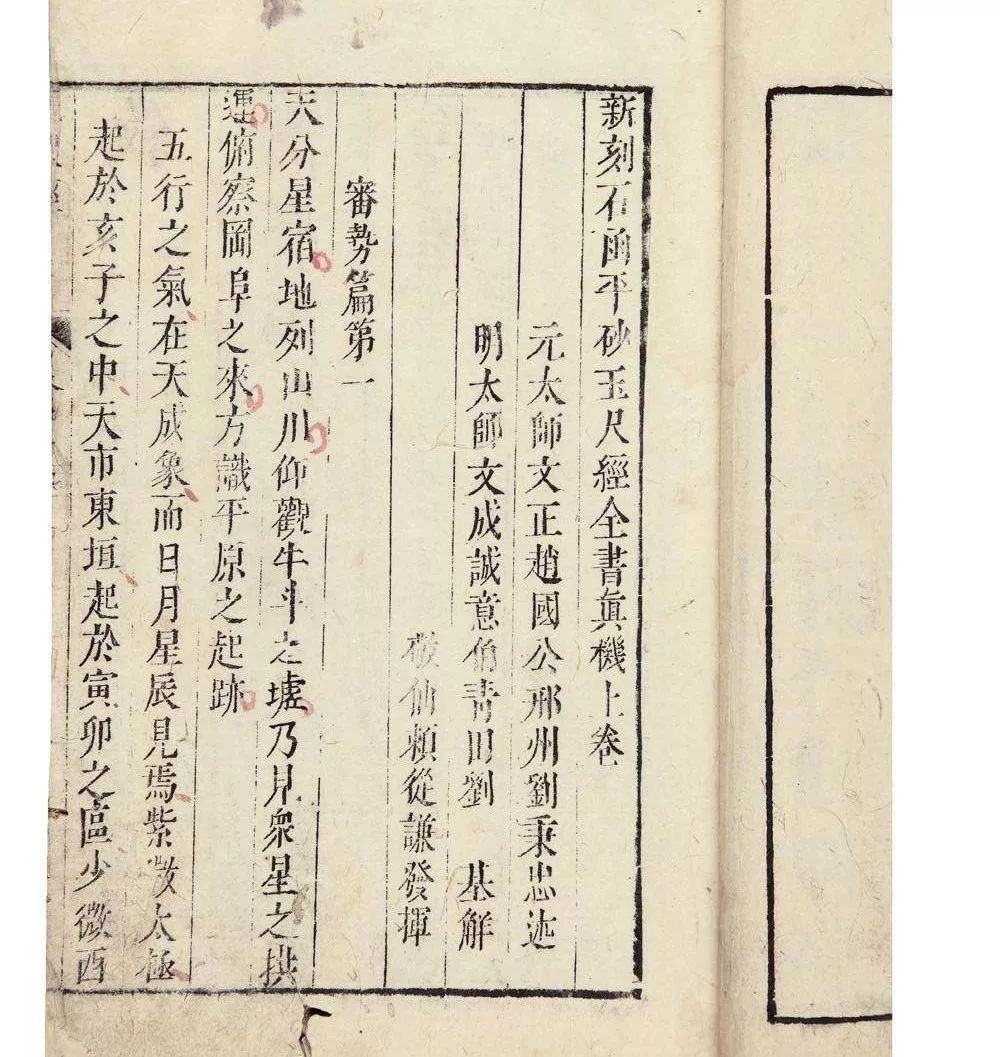 新刻石函平砂玉尺經全書眞機上卷
元太師文正趙國公邢州劉秉忠述
明太師文成誠意伯青田劉 基解
仙賴從謙發揮
審勢篇第一
天分星宿地列山川仰觀牛斗之墟乃見衆星之拱
運俯察岡阜之來方識平原之起跡
五行之氣在天成象而日月星辰見焉紫微太極
起於亥子之中天市東垣起於寅卯之區少微西